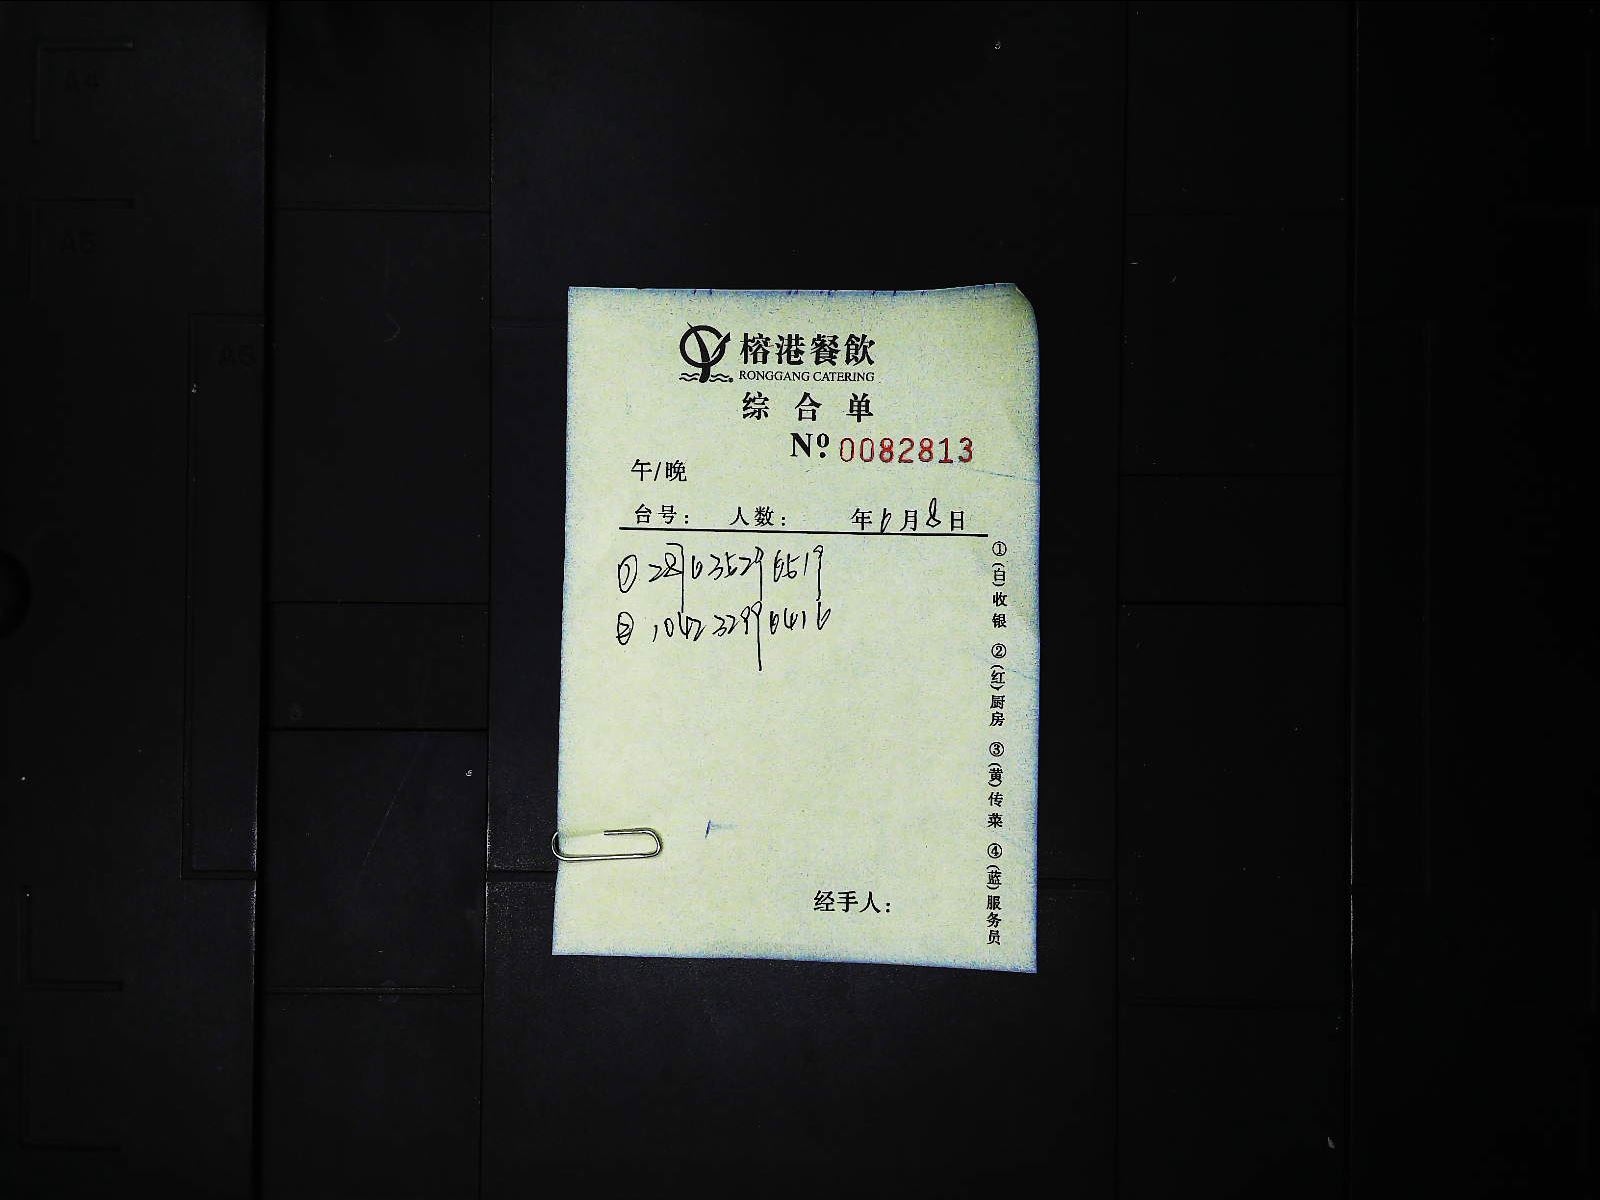 榕港餐飲
RONGGANG CATERING
综合单
Nº 0082813
午/晚
台号： 人数： 年6月8日
① 2896 3529 6519
② 1042 3299 6416
经手人：
①(白)收银 ②(红)厨房 ③(黄)传菜 ④(蓝)服务员
A4
A5
A6